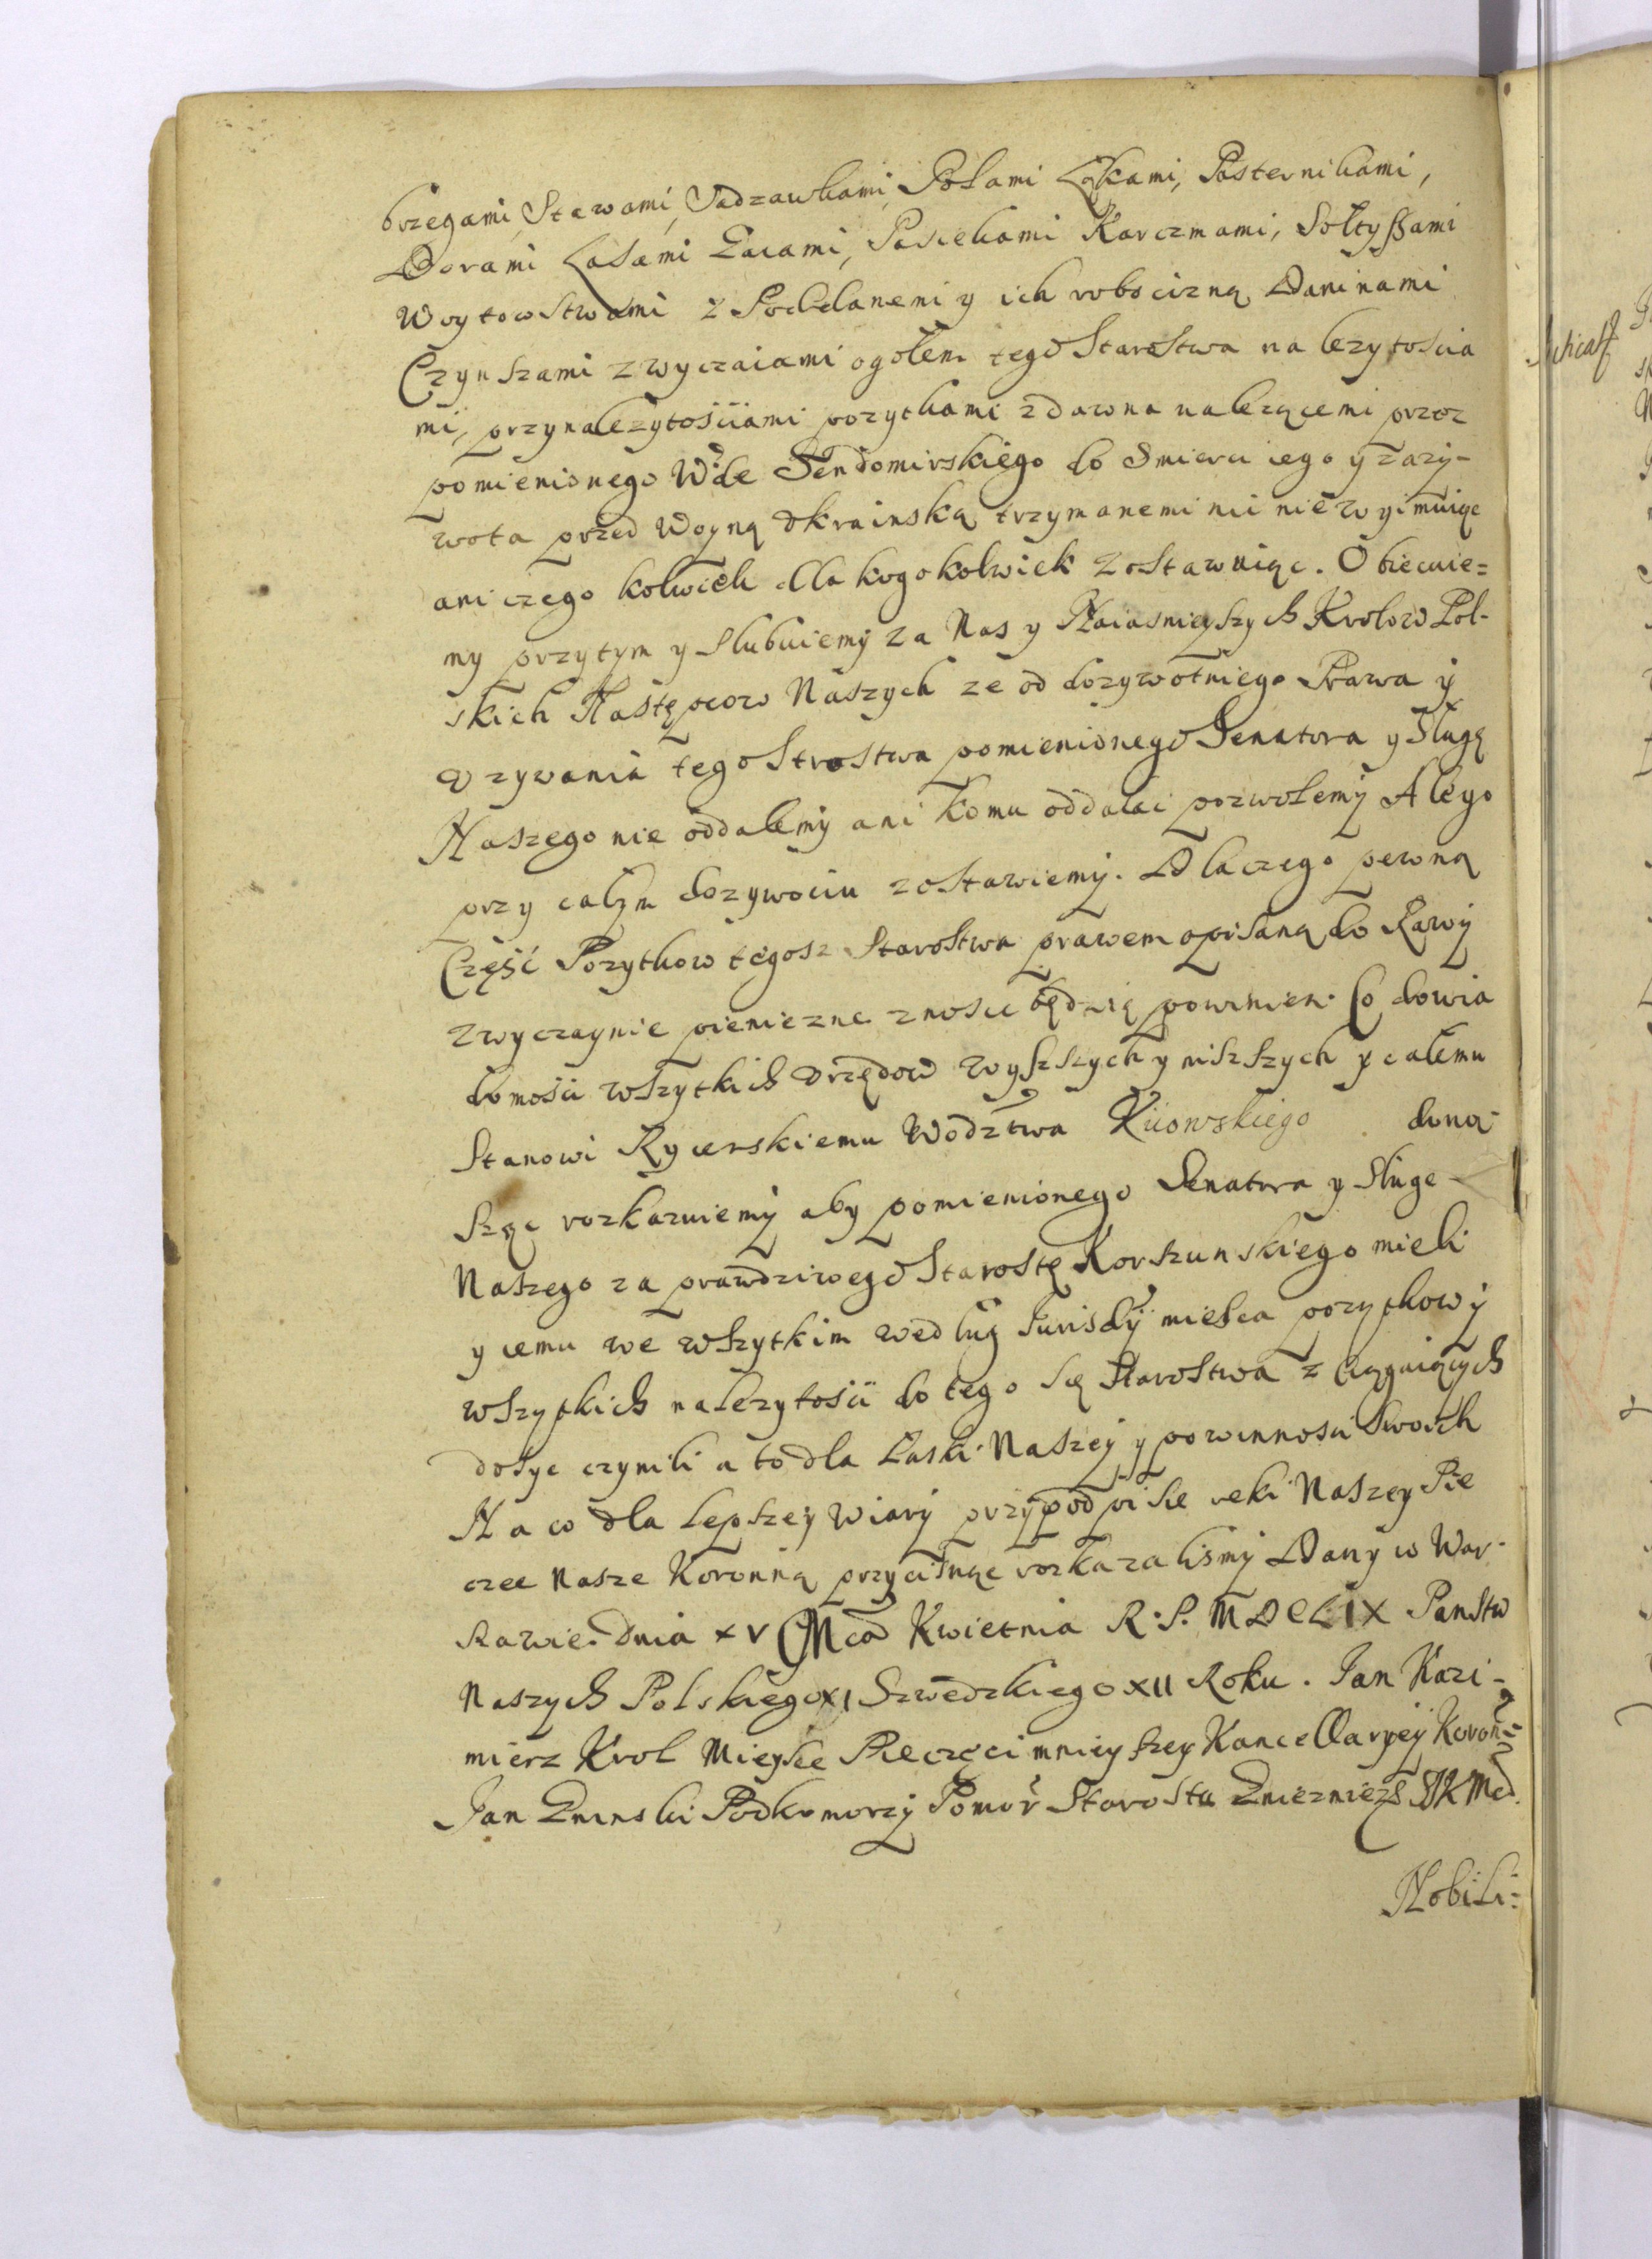 brzegami, Stawami, Sadzawkami, Polami Łąkami, Pasternikami,
Borami Lasami Gaiami, Pasiekami Karczmami, Sołtyssami
Woytowstwami z Poddanemi y ich robocizną Daninami
Czynszami zwyczaiami ogołem tego Starostwa nalezytoscia
mi, przynalezytosciami pozytkami zdawna nalezącemi przez
pomienionego Wde Sendomirskiego do Smierci iego y zazy-
wota przed Woyną Ukrainską trzymanemi nic nie wyimuiąc
ani czego kolwiek dla kogokolwiek zostawuiąc. Obiecuie=
my przytym y slubuiemy za Nas y Naiasnieyszych Krolow Pol-
skich Następcow Naszych ze od dozywotniego Prawa y
uzywania tego Strostwa pomienionego Senatora y Sługę
Naszego nie oddalemy ani komu oddalac pozwolemy Ale go
przy całym dozywociu zostawiemy. Dlaczego pewną
Część Pozytkow tegosz Starostwa prawem opisaną do Rawy
zwyczaynie pieniezne znosic będzię powinien. Co dowia
domości wszytkich Urzędow wyszszych y niszszych y całemu
Stanowi Rycerskiemu Wodztwa Kiiowskiego dono-
sząc rozkazuiemy aby pomienionego Senatora y sługe
Naszego za prawdziwego Starostę Korszunskiego mieli
y iemu we wszytkim według Jurisdy mieisca pozytkow y
wszytkich nalezytości do tego się Starostwa zciągaiących
dosyc czynili a to dla Łaski Naszey y powinności Swoich
Na co dla lepszey wiary przy podpisie reki Naszey Pie
czec Nasze Koronną przycisnąc rozkazalismy Dany w War-
szawie. Dnia XV Mca Kwietnia R. P. MDCLIX Panstw
Naszych Polskiego XI Szwedzkiego XII Roku. Jan Kazi-
mierz Krol Mieysce Pieczęci mnieyszey Kancellaryey Koron=
Jan Zninski Podkomorzy Pomor Starosta Gniezniez JKMci
Nobili=